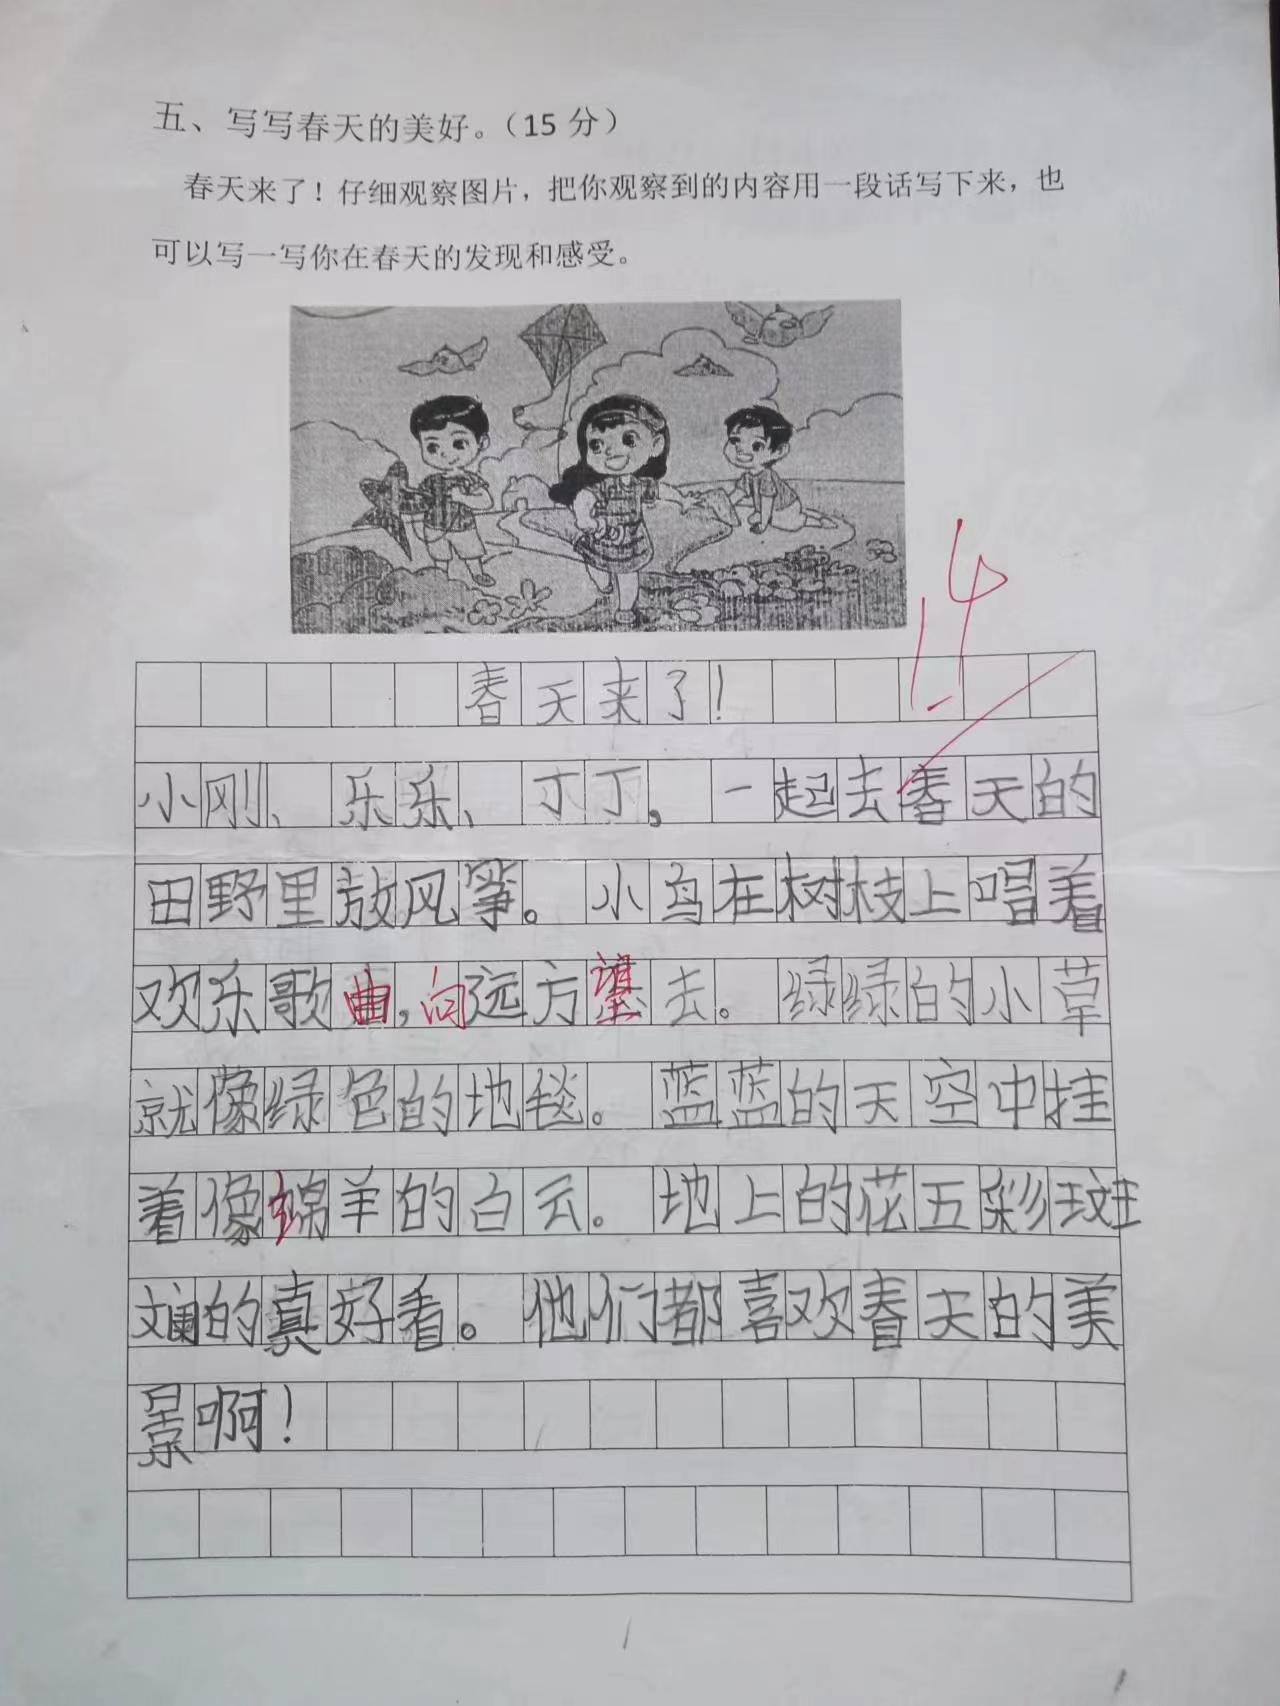 五、写写春天的美好。（15 分）
春天来了！仔细观察图片，把你观察到的内容用一段话写下来，也
可以写一写你在春天的发现和感受。
14
春天来了！
小刚、乐乐、丁丁，一起去春天的
田野里放风筝。小鸟在树枝上唱着
欢乐歌曲，向远方望去。绿绿的小草
就像绿色的地毯。蓝蓝的天空中挂
着像绵羊的白云。地上的花五彩斑
斓的真好看。他们都喜欢春天的美
景啊！